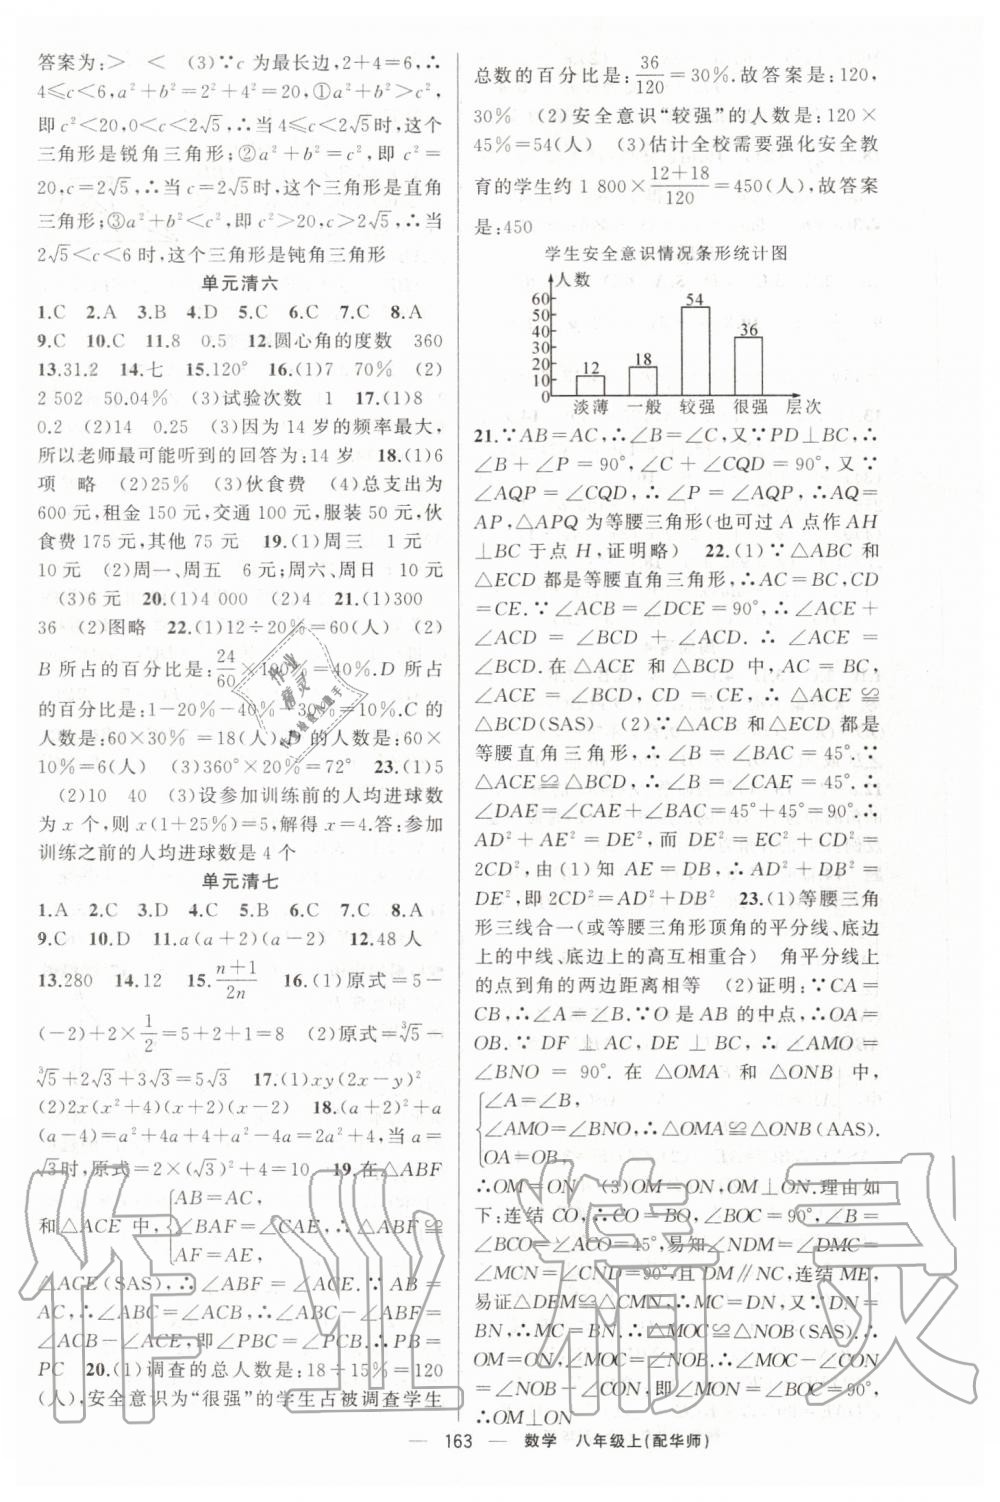 答案为:＞　＜　(3)∵c 为最长边,2+4=6,∴
4≤c＜6,a²+b²=2²+4²=20,①a²+b²＞c²,
即 c²＜20,0＜c＜2√5,∴当 4≤c＜2√5时,这个
三角形是锐角三角形;②a²+b²=c²,即 c²=
20,c=2√5,∴当 c=2√5时,这个三角形是直角
三角形;③a²+b²＜c²,即 c²＞20,c＞2√5,∴当
2√5＜c＜6 时,这个三角形是钝角三角形
单元清六
1.C　2.A　3.B　4.D　5.C　6.C　7.C　8.A
9.C　10.C　11.8　0.5　12.圆心角的度数　360
13.31.2　14.七　15.120°　16.(1)7　70%　(2)
2 502　50.04%　(3)试验次数　1　17.(1)8
0.2　(2)14　0.25　(3)因为 14 岁的频率最大,
所以老师最可能听到的回答为:14 岁　18.(1)6
项　略　(2)25%　(3)伙食费　(4)总支出为
600 元,租金 150 元,交通 100 元,服装 50 元,伙
食费 175 元,其他 75 元　19.(1)周三　1 元
10 元　(2)周一、周五　6 元;周六、周日　10 元
(3)6 元　20.(1)4 000　(2)4　21.(1)300
36　(2)图略　22.(1)12÷20%=60(人)　(2)
B 所占的百分比是:24/60×100%=40%.D 所占
的百分比是:1-20%-40%-30%=10%.C 的
人数是:60×30%=18(人),D 的人数是:60×
10%=6(人)　(3)360°×20%=72°　23.(1)5
(2)10　40　(3)设参加训练前的人均进球数
为 x 个,则 x(1+25%)=5,解得 x=4.答:参加
训练之前的人均进球数是 4 个
单元清七
1.A　2.C　3.D　4.C　5.B　6.C　7.C　8.A
9.C　10.D　11.a(a+2)(a-2)　12.48 人
13.280　14.12　15.(n+1)/2n　16.(1)原式=5-
(-2)+2×1/2=5+2+1=8　(2)原式=∛5-
∛5+2√3+3√3=5√3　17.(1)xy(2x-y)²
(2)2x(x²+4)(x+2)(x-2)　18.(a+2)²+a
(a-4)=a²+4a+4+a²-4a=2a²+4,当 a=
√3时,原式=2×(√3)²+4=10　19.在△ABF
和△ACE 中,{AB=AC,
∠BAF=∠CAE,∴△ABF≌
AF=AE,
△ACE(SAS),∴∠ABF=∠ACE.∵AB=
AC,∴∠ABC=∠ACB,∴∠ABC-∠ABF=
∠ACB-∠ACE,即∠PBC=∠PCB,∴PB=
PC　20.(1)调查的总人数是:18÷15%=120
(人),安全意识为“很强”的学生占被调查学生
总数的百分比是:36/120=30%.故答案是:120,
30%　(2)安全意识“较强”的人数是:120×
45%=54(人)　(3)估计全校需要强化安全教
育的学生约 1 800×(12+18)/120=450(人),故答案
是:450
学生安全意识情况条形统计图
人数
60
50
40
30
20
10
0
12
18
54
36
淡薄　一般　较强　很强　层次
21.∵AB=AC,∴∠B=∠C,又∵PD⊥BC,∴
∠B+∠P=90°,∠C+∠CQD=90°,又∵
∠AQP=∠CQD,∴∠P=∠AQP,∴AQ=
AP,△APQ 为等腰三角形(也可过 A 点作 AH
⊥BC 于点 H,证明略)　22.(1)∵△ABC 和
△ECD 都是等腰直角三角形,∴AC=BC,CD
=CE.∵∠ACB=∠DCE=90°,∴∠ACE+
∠ACD=∠BCD+∠ACD,∴∠ACE=
∠BCD.在△ACE 和△BCD 中,AC=BC,
∠ACE=∠BCD,CD=CE,∴△ACE≌
△BCD(SAS)　(2)∵△ACB 和△ECD 都是
等腰直角三角形,∴∠B=∠BAC=45°.∵
△ACE≌△BCD,∴∠B=∠CAE=45°,∴
∠DAE=∠CAE+∠BAC=45°+45°=90°,∴
AD²+AE²=DE²,而 DE²=EC²+CD²=
2CD²,由(1)知 AE=DB,∴AD²+DB²=
DE²,即 2CD²=AD²+DB²　23.(1)等腰三角
形三线合一(或等腰三角形顶角的平分线、底边
上的中线、底边上的高互相重合)　角平分线上
的点到角的两边距离相等　(2)证明:∵CA=
CB,∴∠A=∠B.∵O 是 AB 的中点,∴OA=
OB.∵DF⊥AC,DE⊥BC,∴∠AMO=
∠BNO=90°.在△OMA 和△ONB 中,
{∠A=∠B,
∠AMO=∠BNO,∴△OMA≌△ONB(AAS).
OA=OB,
∴OM=ON　(3)OM=ON,OM⊥ON.理由如
下:连结 CO,∴CO=BO,∠BOC=90°,∠B=
∠BCO=∠ACO=45°,易知∠NDM=∠DMC=
∠MCN=∠CND=90°,且 DM∥NC,连结 ME,
易证△DEM≌△CMN,∴MC=DN,又∵DN=
BN,∴MC=BN,∴△MOC≌△NOB(SAS).∴
OM=ON,∠MOC=∠NOB,∴∠MOC-∠CON
=∠NOB-∠CON,即∠MON=∠BOC=90°,
∴OM⊥ON
163　数学　八年级上(配华师)
作业精灵